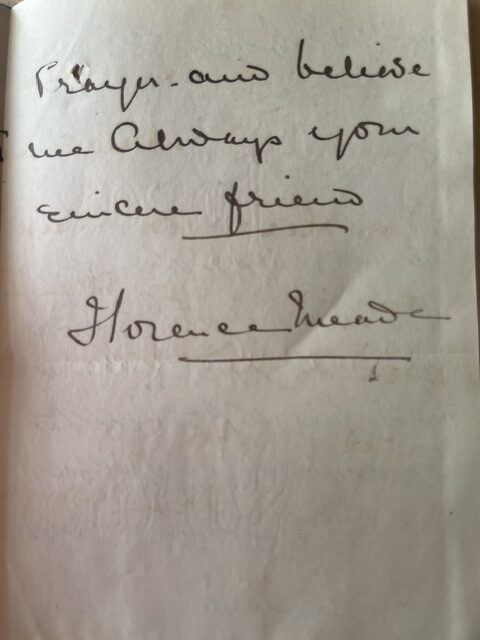 Prayer - and believe
me Always your
sincere friend
Florence Meade